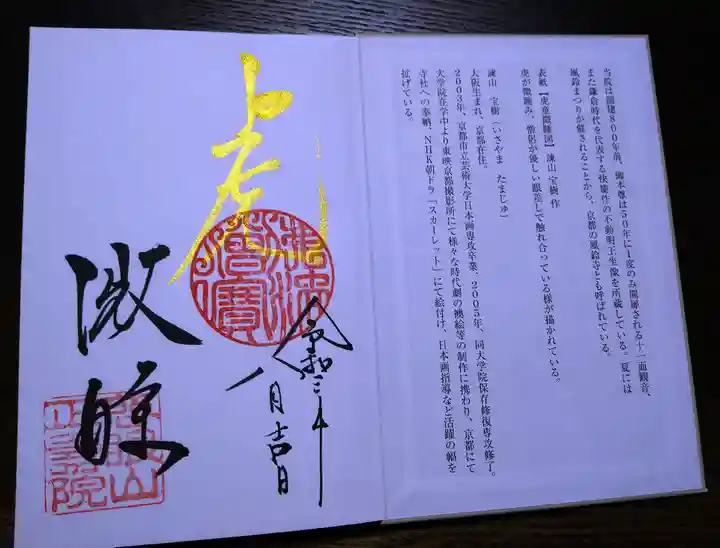 当院は開建800年前、御本尊は50年に1度のみ開扉される十一面観音、
また鎌倉時代を代表する快慶作の不動明王坐像を所蔵している。夏には
風鈴まつりが催されることから、京都の風鈴寺とも呼ばれている。
表紙【虎童微睡図】諫山 宝樹 作
虎が微睡み、僧侶が優しい眼差しで触れ合っている様が描かれている。
諫山 宝樹(いさやま たまじゅ)
大阪生まれ、京都在住。
2003年、京都市立芸術大学日本画専攻卒業、2005年、同大学院保存修復専攻修了。
大学院在学中より東映京都撮影所にて様々な時代劇の襖絵等の制作に携わり、京都にて
寺社への奉納、NHK朝ドラ「スカーレット」にて絵付け、日本画指導など活躍の幅を
拡げている。
令和三年
八月吉日
虎
佛法僧寶
微睡
山
院